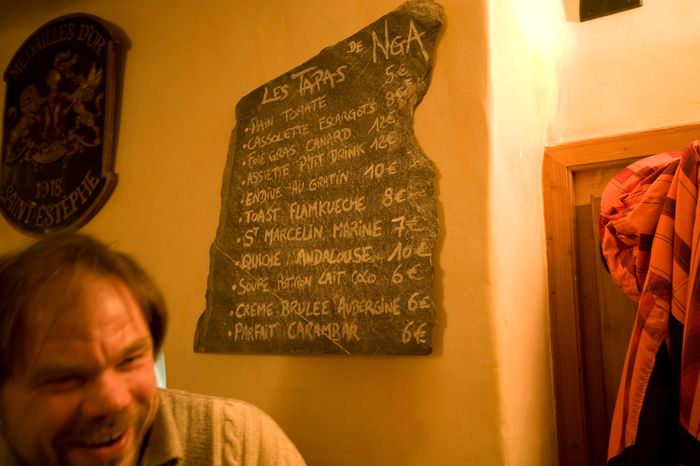 MEDAILLES D'OR
1918
SAINT-ESTÈPHE
LES TAPAS DE NGA
• PAIN TOMATE 5€
• CASSOLETTE ESCARGOTS 8€
• FOIE GRAS CANARD 12€
• ASSIETTE P'TIT DRINK 12€
• ENDIVE AU GRATIN 10€
• TOAST FLAMKUECHE 8€
• ST MARCELIN MARINE 7€
• QUICHE ANDALOUSE 10€
• SOUPE POTIRON LAIT COCO 6€
• CREME BRULEE AUBERGINE 6€
• PARFAIT CARAMBAR 6€